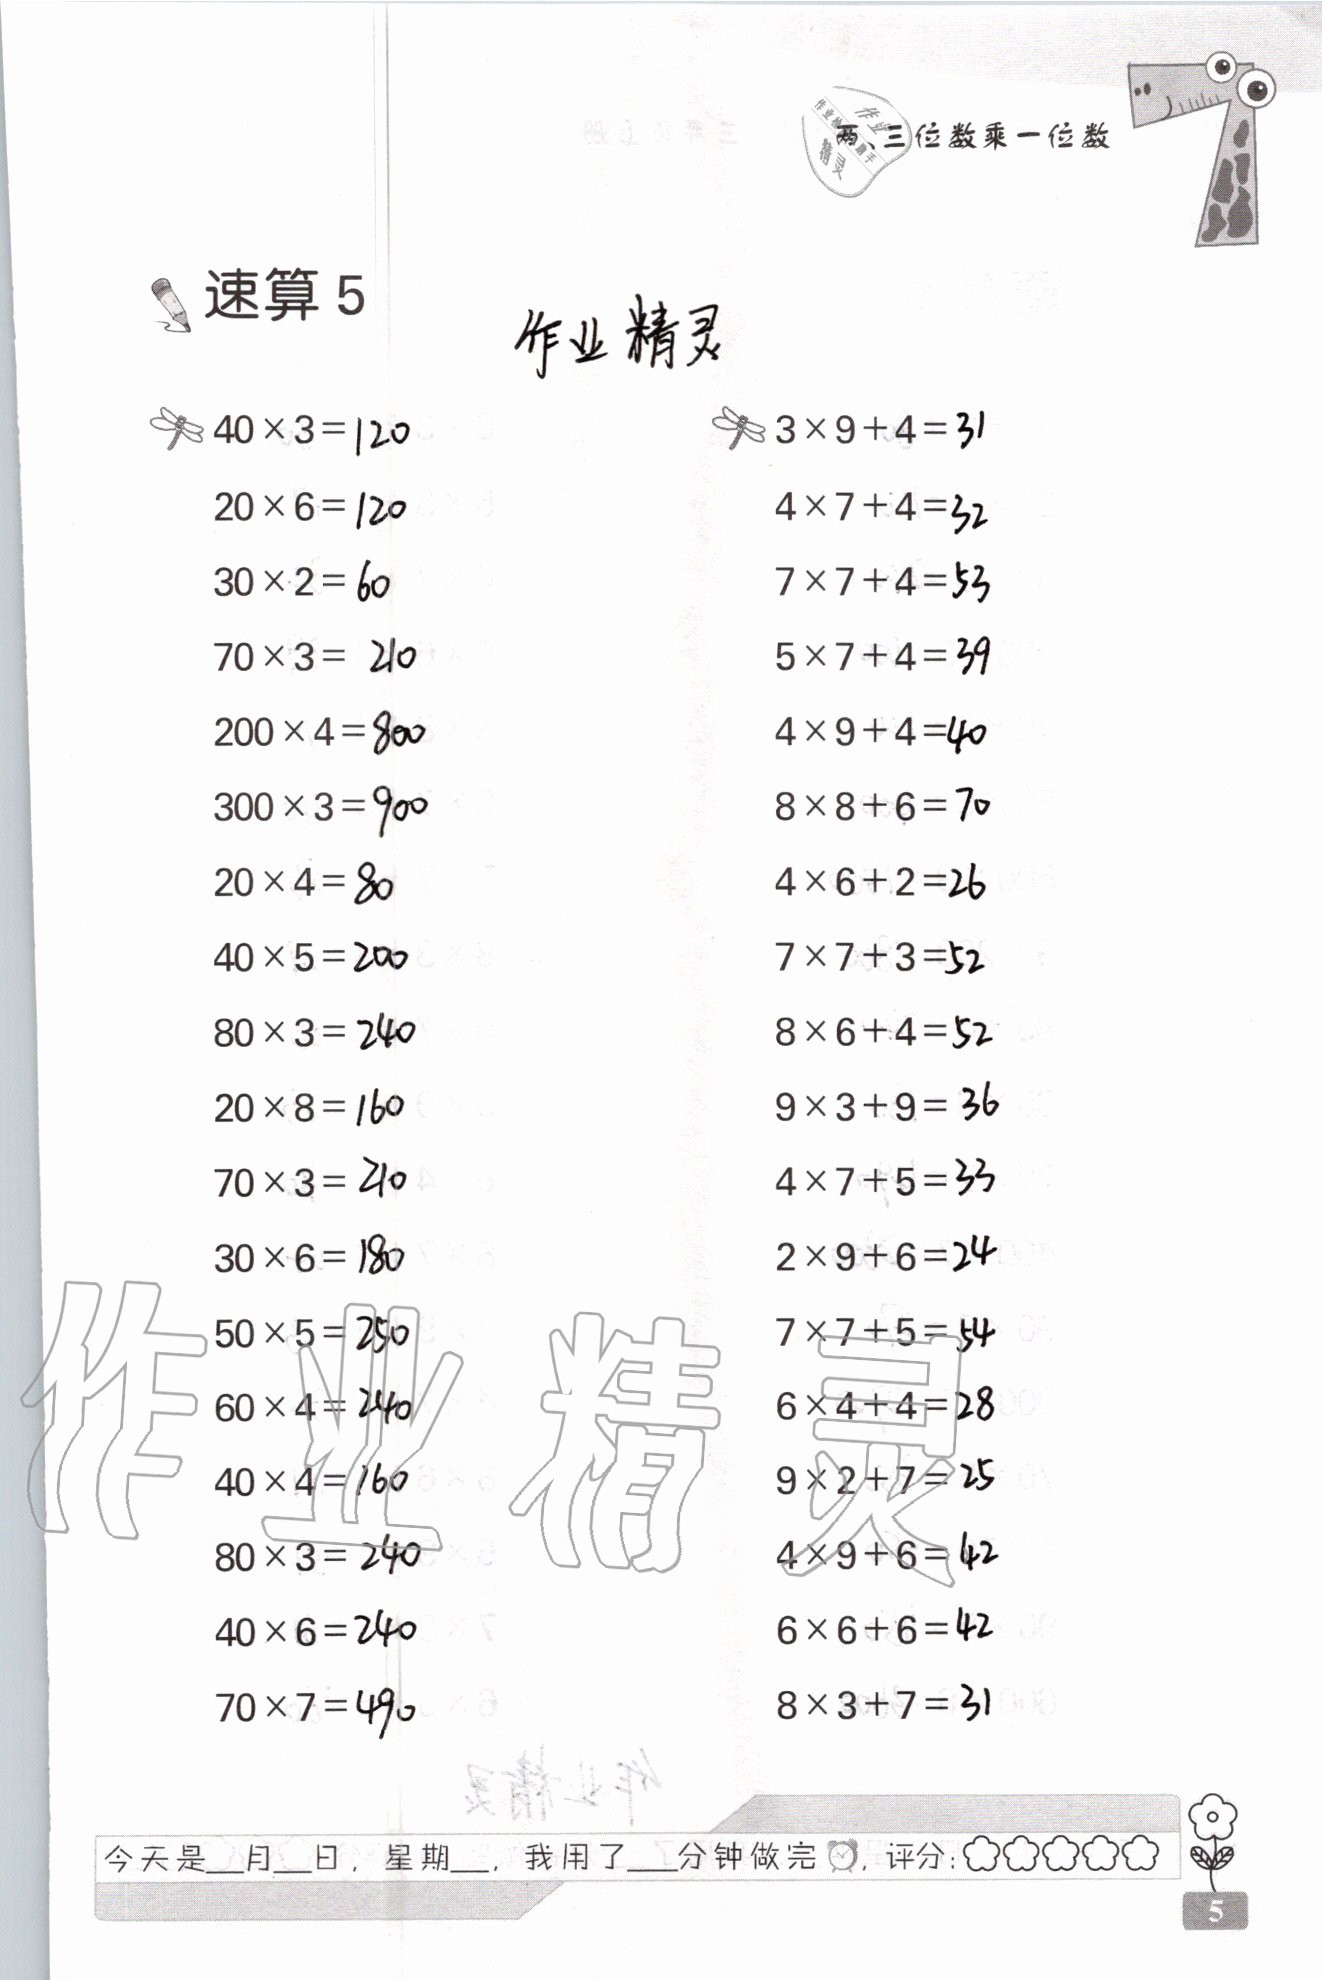 两、三位数乘一位数
作业
精灵
速算 5
作业精灵
40×3=120
20×6=120
30×2=60
70×3=210
200×4=800
300×3=900
20×4=80
40×5=200
80×3=240
20×8=160
70×3=210
30×6=180
50×5=250
60×4=240
40×4=160
80×3=240
40×6=240
70×7=490
3×9+4=31
4×7+4=32
7×7+4=53
5×7+4=39
4×9+4=40
8×8+6=70
4×6+2=26
7×7+3=52
8×6+4=52
9×3+9=36
4×7+5=33
2×9+6=24
7×7+5=54
6×4+4=28
9×2+7=25
4×9+6=42
6×6+6=42
8×3+7=31
作业精灵
今天是__月__日，星期__，我用了___分钟做完，评分：
5